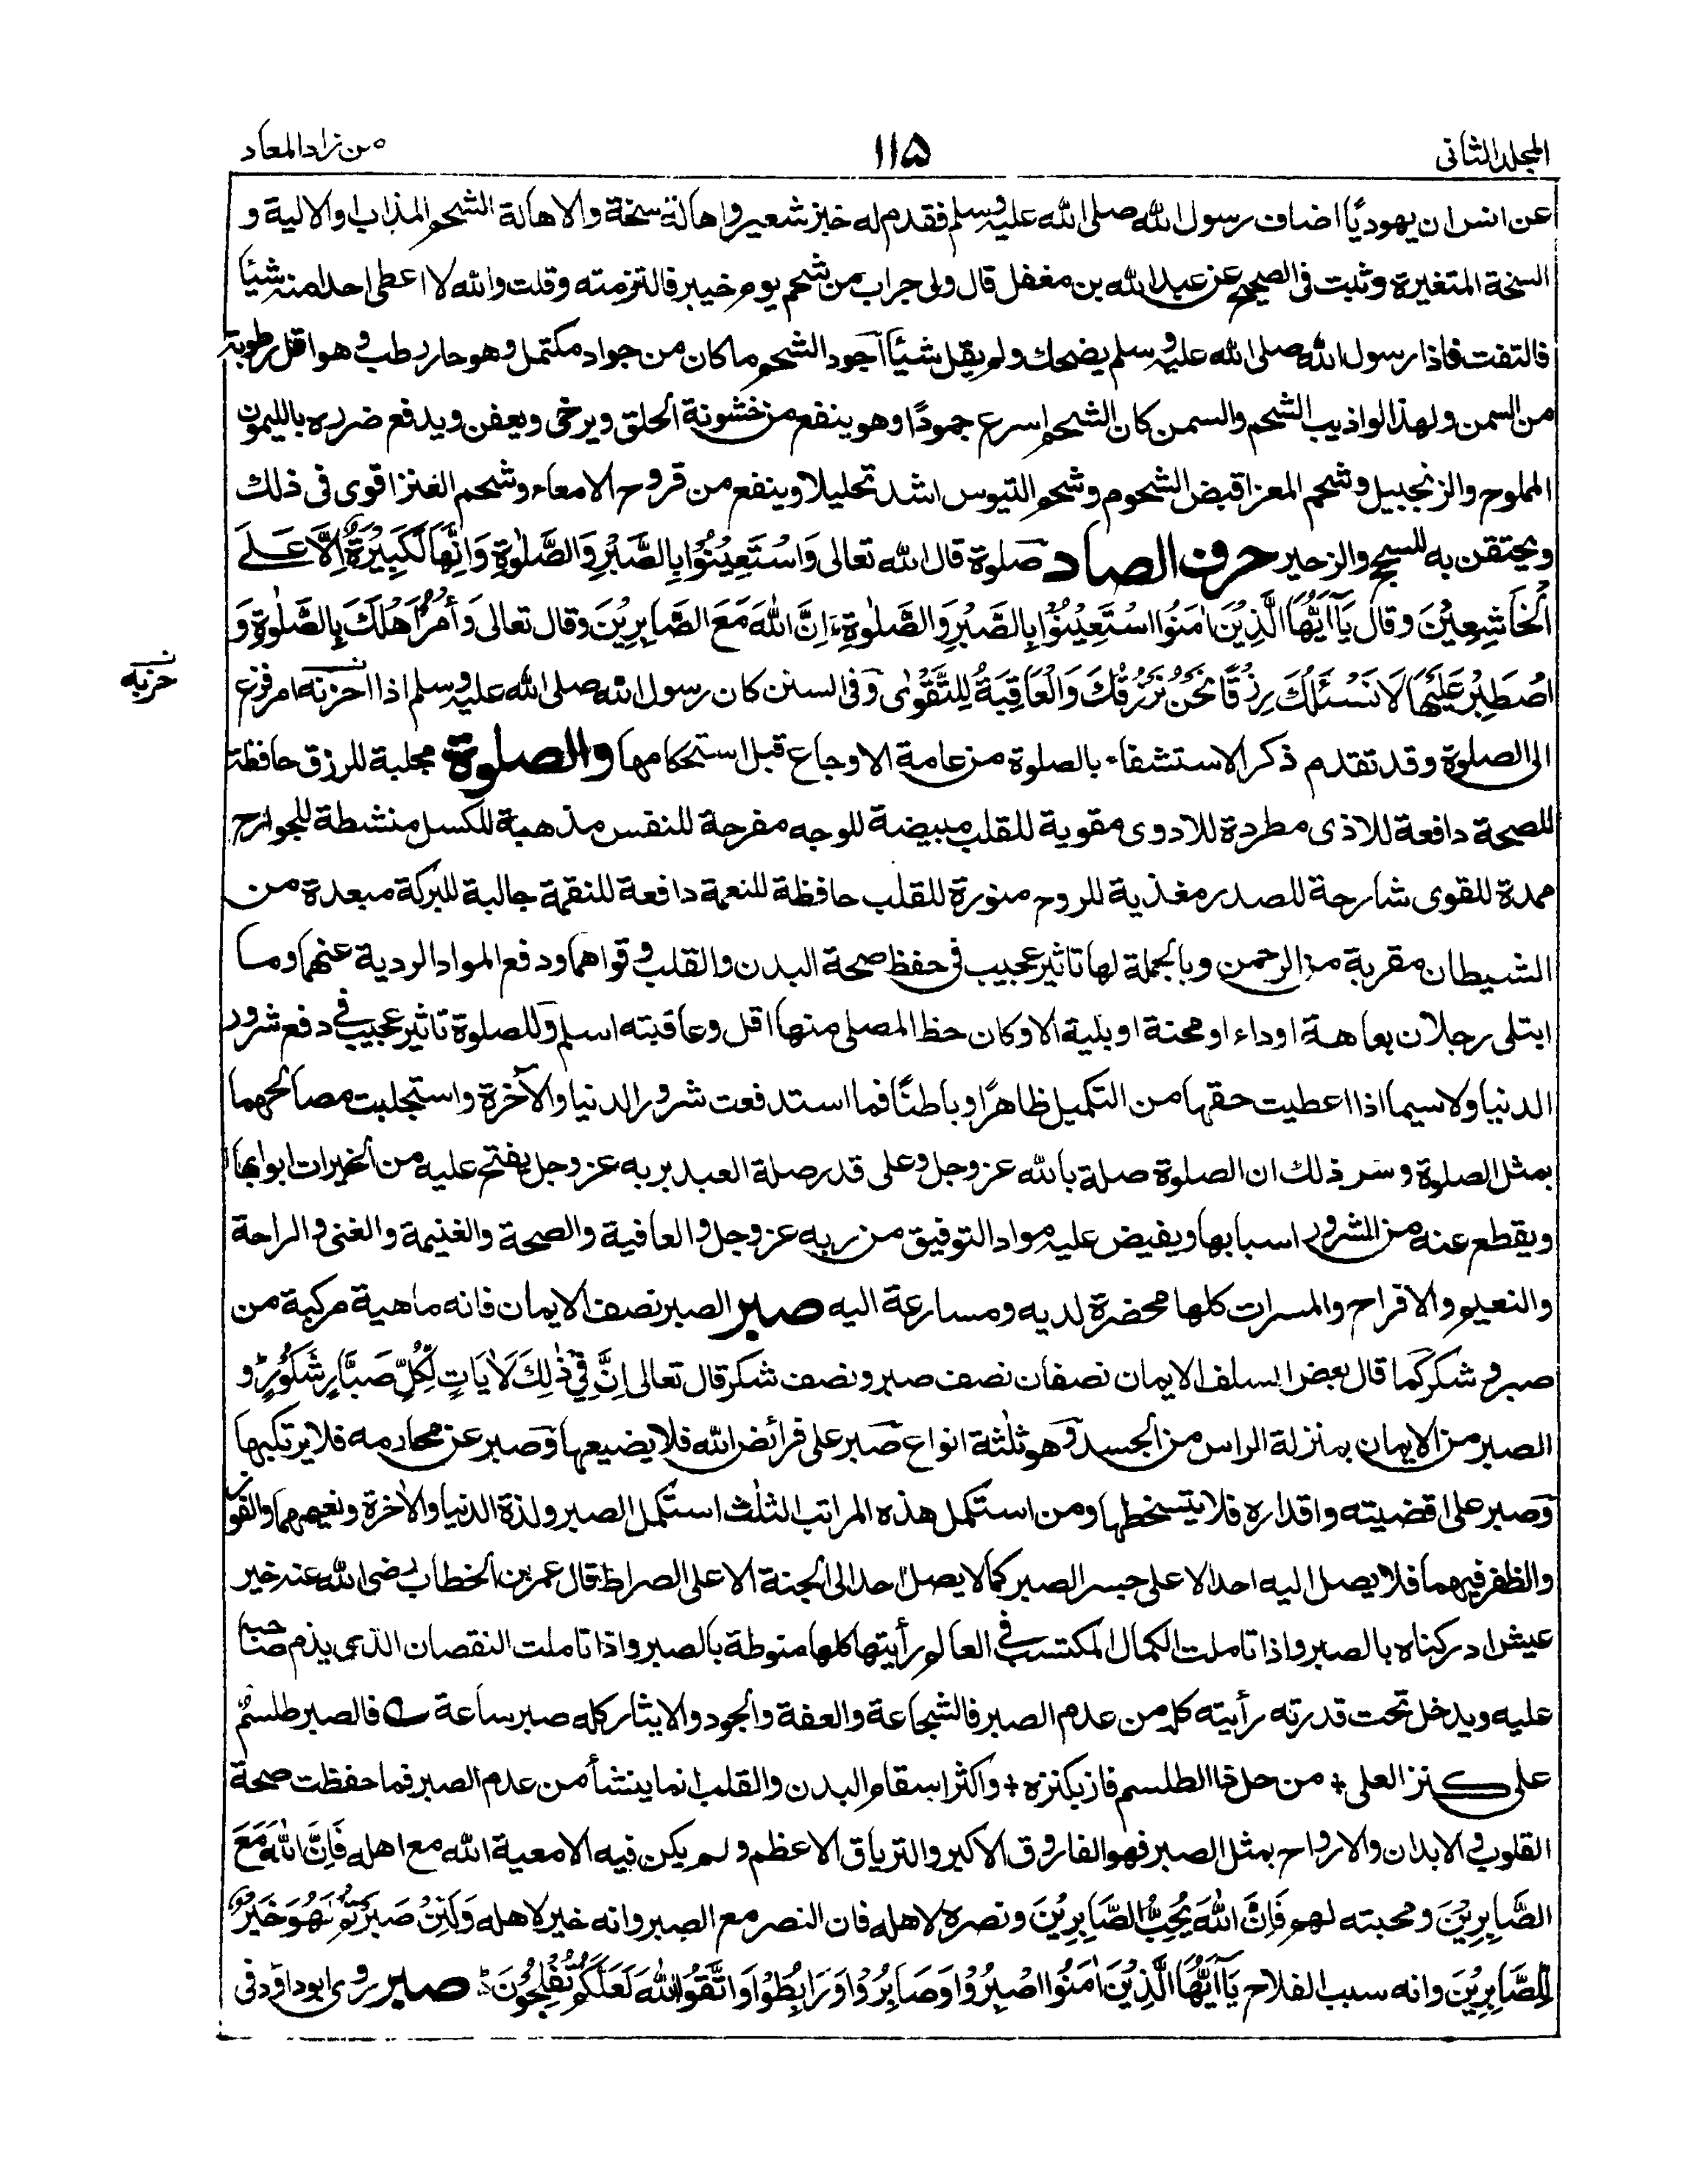 المجلد الثانى
١١۵
من زاد المعاد
عن انس ان يهوديًا اضاف رسول الله صلى الله عليه وسلم فقدم له خبز شعير واهالة سخة والاهالة الشحم المذاب والالية و
السخة المتغيرة وثبت فى الصحيح عن عبد الله بن مغفل قال ولى جراب من شحم يوم خيبر فالتزمته وقلت والله لا اعطى احدا منه شيئا
فالتفت فاذا رسول الله صلى الله عليه وسلم يضحك ولم يقل شيئا آجود الشحم ما كان من جواد مكتمل وهو حار رطب وهو اقل رطوبة
من السمن ولهذا لو اذيب الشحم والسمن كان الشحم اسرع جمودًا وهو ينفع من خشونة الحلق ويرخى ويعفن ويدفع ضرره بالليمون
المملوح والزنجبيل وشحم المعز اقبض الشحوم وشحم التيوس اشد تحليلا وينفع من قروح الامعاء وشحم الغنز اقوى فى ذلك
ويحتقن به للسحج والزحير حرف الصاد صلوة قال الله تعالى وَاسْتَعِيْنُوْا بِالصَّبْرِ وَالصَّلٰوةِ وَاِنَّهَا لَكَبِيْرَةٌ اِلَّا عَلَے
الْخَاشِعِيْنَ وقال يَآاَيُّهَا الَّذِيْنَ اٰمَنُوا اسْتَعِيْنُوْا بِالصَّبْرِ وَالصَّلٰوةِ اِنَّ اللهَ مَعَ الصَّابِرِيْنَ وقال تعالى وَأْمُرْ اَهْلَكَ بِالصَّلٰوةِ وَ
اصْطَبِرْ عَلَيْهَا لَا نَسْئَلُكَ رِزْقًا نَحْنُ نَرْزُقُكَ وَالْعَاقِبَةُ لِلتَّقْوٰى وفى السنن كان رسول الله صلى الله عليه وسلم اذا احزنه امر فزع
حزبه
الى الصلوة وقد تقدم ذكر الاستشفاء بالصلوة من عامة الاوجاع قبل استحكامها والصلوة مجلبة للرزق حافظة
للصحة دافعة للاذى مطردة للادوى مقوية للقلب مبيضة للوجه مفرحة للنفس مذهبة للكسل منشطة للجوارح
ممدة للقوى شارحة للصدر مغذية للروح منورة للقلب حافظة للنعمة دافعة للنقمة جالبة للبركة مبعدة من
الشيطان مقربة من الرحمن وبالجملة لها تاثير عجيب فى حفظ صحة البدن والقلب وقواهما ودفع المواد الردية عنهما وما
ابتلى رجلان بعاهة او داء او محنة او بلية الا وكان حظ المصلى منها اقل وعاقبته اسلم وللصلوة تاثير عجيب فى دفع شرور
الدنيا ولا سيما اذا اعطيت حقها من التكميل ظاهرًا وباطنًا فما استدفعت شرور الدنيا والآخرة واستجلبت مصالحهما
بمثل الصلوة وسر ذلك ان الصلوة صلة بالله عز وجل وعلى قدر صلة العبد بربه عز وجل يفتح عليه من الخيرات ابوابها
ويقطع عنه من الشرور اسبابها ويفيض عليه مواد التوفيق من ربه عز وجل والعافية والصحة والغنيمة والغنى والراحة
والنعيم والافراح والمسرات كلها محضرة لديه ومسارعة اليه صبر الصبر نصف الايمان فانه ماهية مركبة من
صبر وشكر كما قال بعض السلف الايمان نصفان نصف صبر ونصف شكر قال تعالى اِنَّ فِيْ ذٰلِكَ لَاٰيَاتٍ لِّكُلِّ صَبَّارٍ شَكُوْرٍ و
الصبر من الايمان بمنزلة الراس من الجسد وهو ثلثة انواع صبر على فرائض الله فلا يضيعها وصبر عن محارمه فلا يرتكبها
وصبر على اقضيته واقداره فلا يتسخطها ومن استكمل هذه المراتب الثلث استكمل الصبر ولذة الدنيا والاٰخرة ونعيمهما والفوز
والظفر فيهما فلا يصل اليه احد الا على جسر الصبر كما لا يصل احد الى الجنة الا على الصراط قال عمر بن الخطاب رضى الله عنه خير
عيش ادركناه بالصبر واذا تاملت الكمال المكتسب فى العالم رأيتها كلها منوطة بالصبر واذا تاملت النقصان الذى يذم صاحبه
عليه ويدخل تحت قدرته رأيته كله من عدم الصبر فالشجاعة والعفة والجود والايثار كله صبر ساعة فالصبر طلسم
على كنز العلى من حل ذا الطلسم فاز بكنزه واكثر اسقام البدن والقلب انما ينشأ من عدم الصبر فما حفظت صحة
القلوب والابدان والارواح بمثل الصبر فهو الفاروق الاكبر والترياق الاعظم ولم يكن فيه الا معية الله مع اهله فَاِنَّ اللهَ مَعَ
الصَّابِرِيْنَ ومحبته لهم فَاِنَّ اللهَ يُحِبُّ الصَّابِرِيْنَ ونصره لاهله فان النصر مع الصبر وانه خير لاهله وَلَئِنْ صَبَرْتُمْ لَهُوَ خَيْرٌ
لِّلصَّابِرِيْنَ وانه سبب الفلاح يَآاَيُّهَا الَّذِيْنَ اٰمَنُوا اصْبِرُوْا وَصَابِرُوْا وَرَابِطُوْا وَاتَّقُوا اللهَ لَعَلَّكُمْ تُفْلِحُوْنَ صبر روى ابوداؤد فى